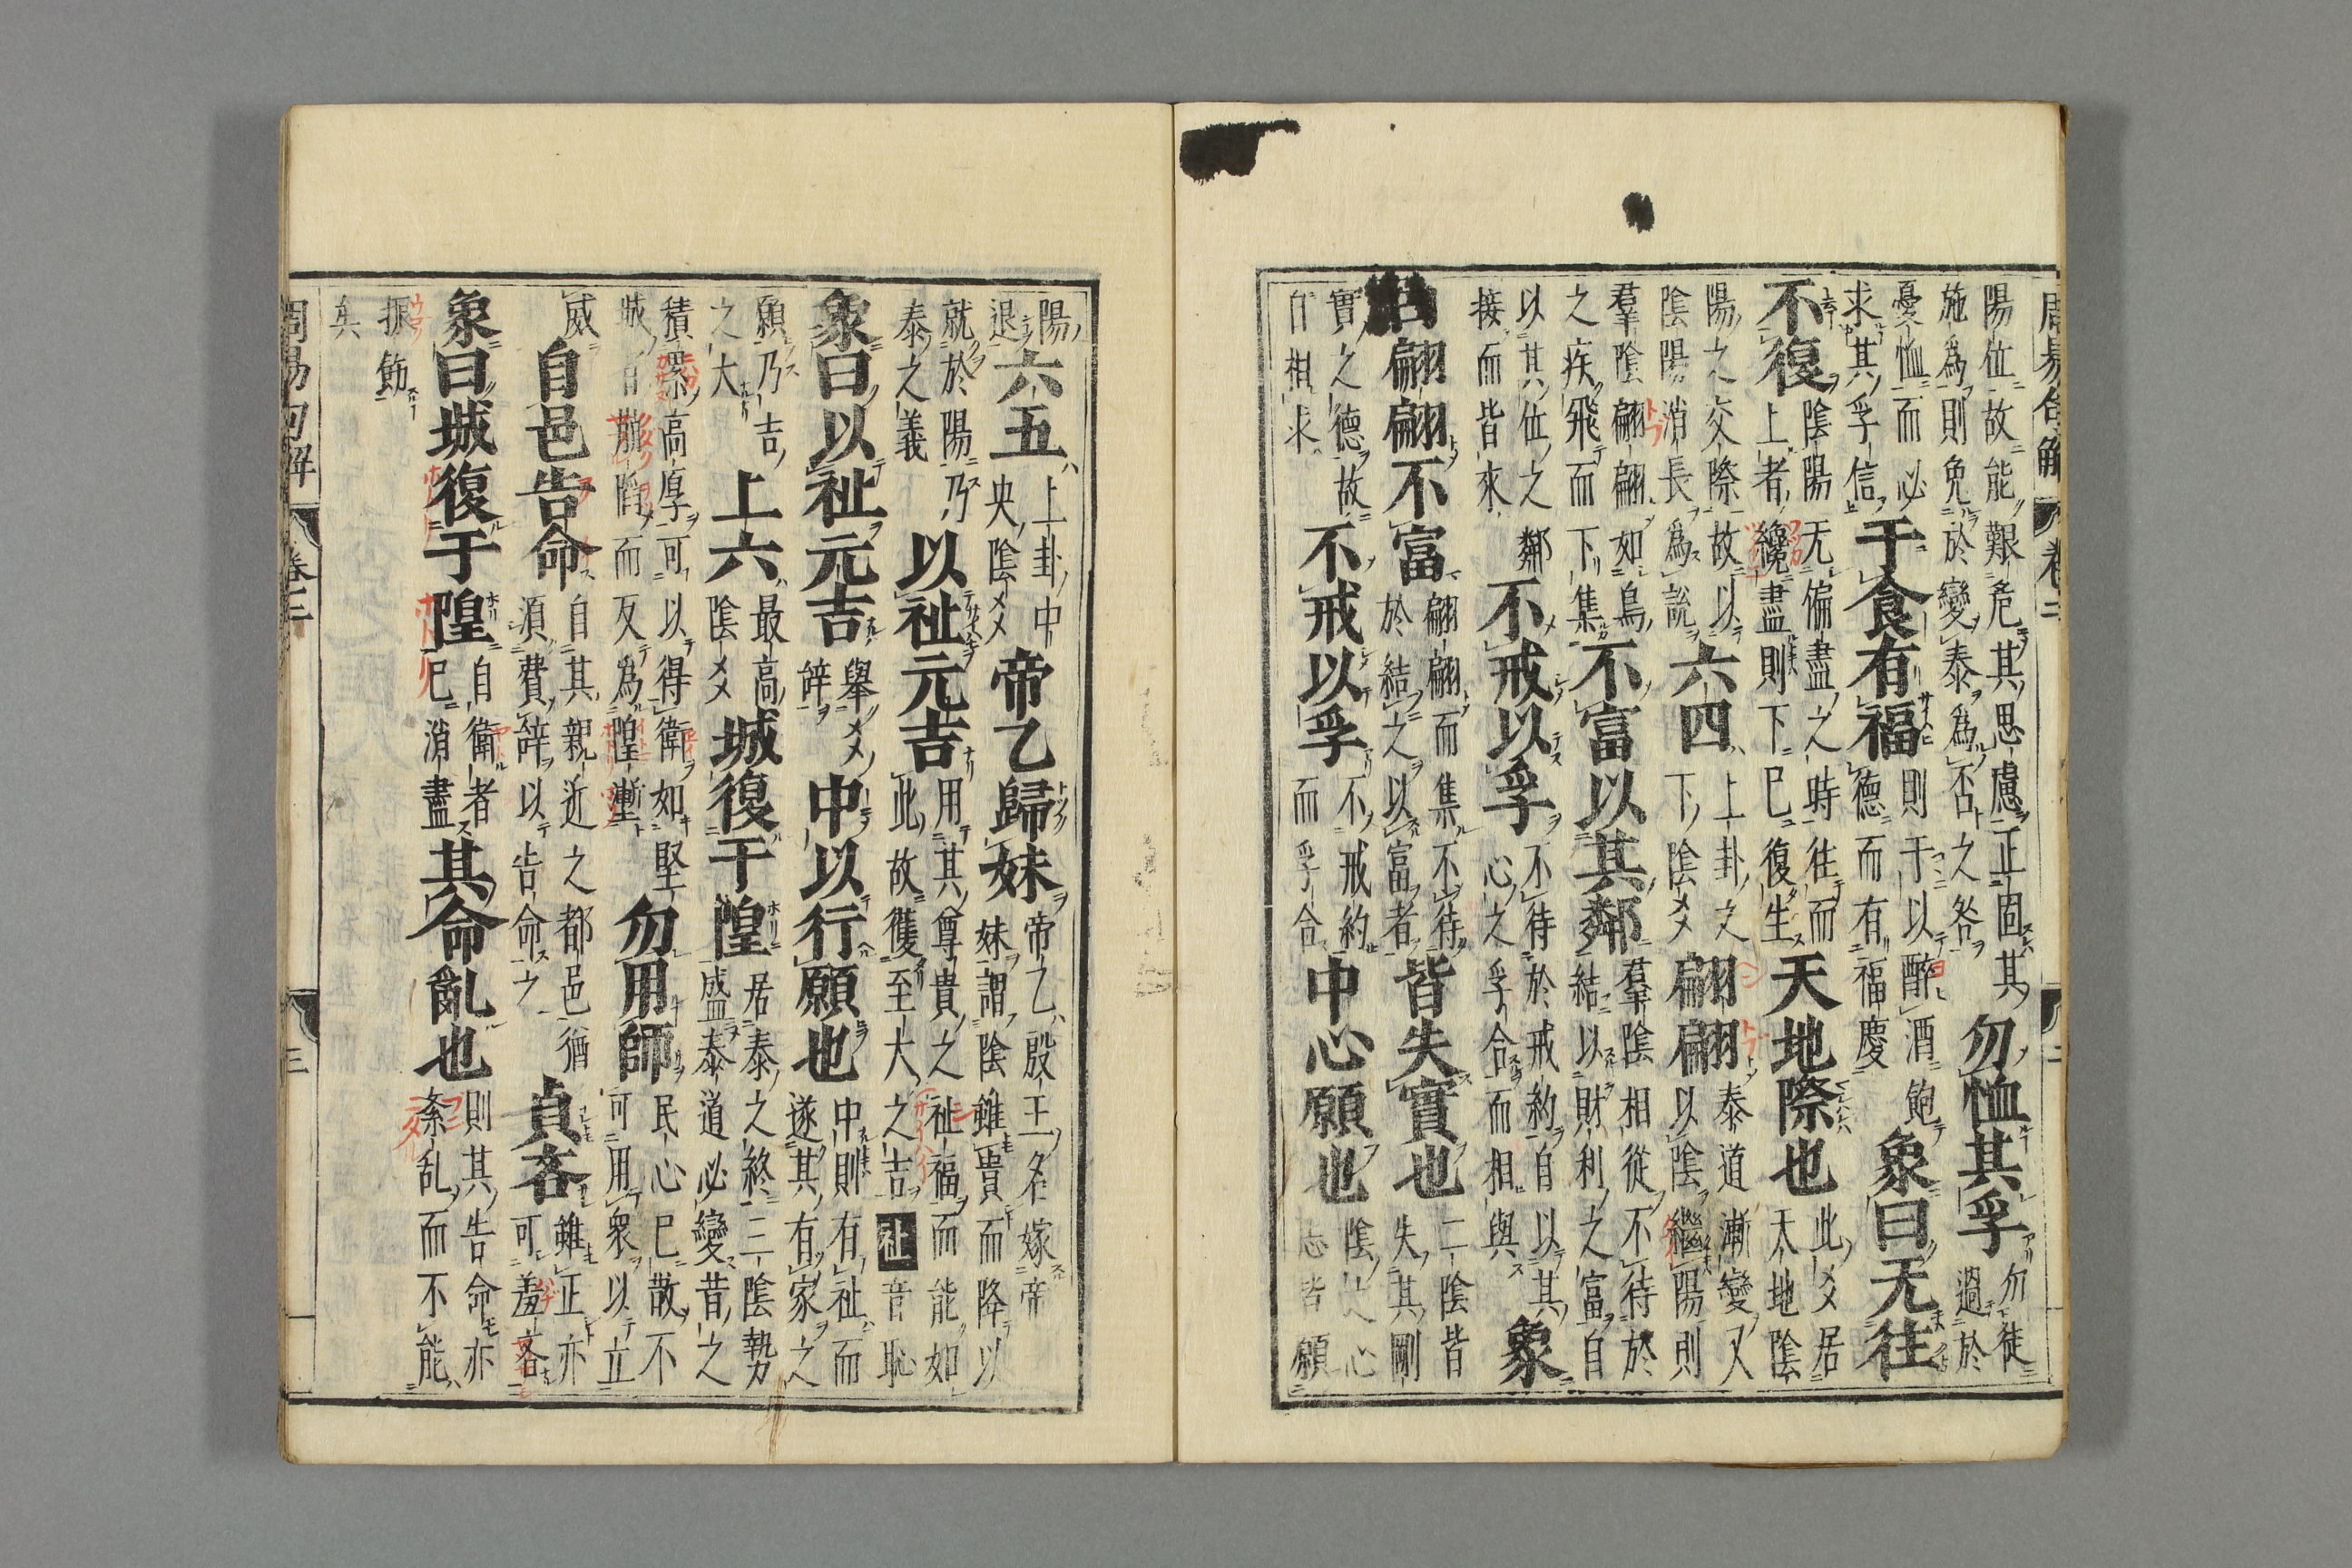 陽位故能艱危其思慮正固其
施為則免於變泰為否之咎
勿恤其孚
勿徒
過於
憂恤而必
求其孚信
于食有福
則于以醉酒飽
德而有福慶
象曰无往
不復
陰陽无偏盡之時往而
上者纔盡則下已復生
天地際也
此爻居
天地陰
陽之交際故以
陰陽消長為說
六四
上卦之
下陰爻
翩翩
泰道漸變又
以陰繼陽則
羣陰翩翩如鳥
之疾飛而下集
不富以其鄰
羣陰相從不待於
結以財利之富自
以其位之
接而皆來
鄰
不戒以孚
不待於戒約自以其
心之孚合而相與
象
曰翩翩不富
翩翩而集不待
於結之以富者
皆失實也
二陰皆
失其剛
實之德故
自相求
不戒以孚
不戒約
而孚合
中心願也
陰之心
志皆願
陽
退
六五
上卦中
央陰爻
帝乙歸妹
帝乙殷王名嫁帝
妹謂陰雖貴而降以
就於陽乃
泰之義
以祉元吉
用其尊貴之祉福而能如
此故獲至大之吉祉音恥
象曰以祉元吉
舉爻
辭
中以行願也
中則有祉而
遂其有家之
願乃吉
之大
上六
最高
陰爻
城復于隍
居泰之終三陰勢
盛泰道必變昔之
積累高厚可以得衛如堅
城自崩隤而反為隍塹
勿用師
民心已散不
可用衆以立
威
自邑告命
自其親近之都邑猶
須費辭以告命之
貞吝
雖正亦
可羞吝
象曰城復于隍
自衛者
已消盡
其命亂也
則其告命亦
紊乱而不能
振飭
矣
周易句解
卷三
三